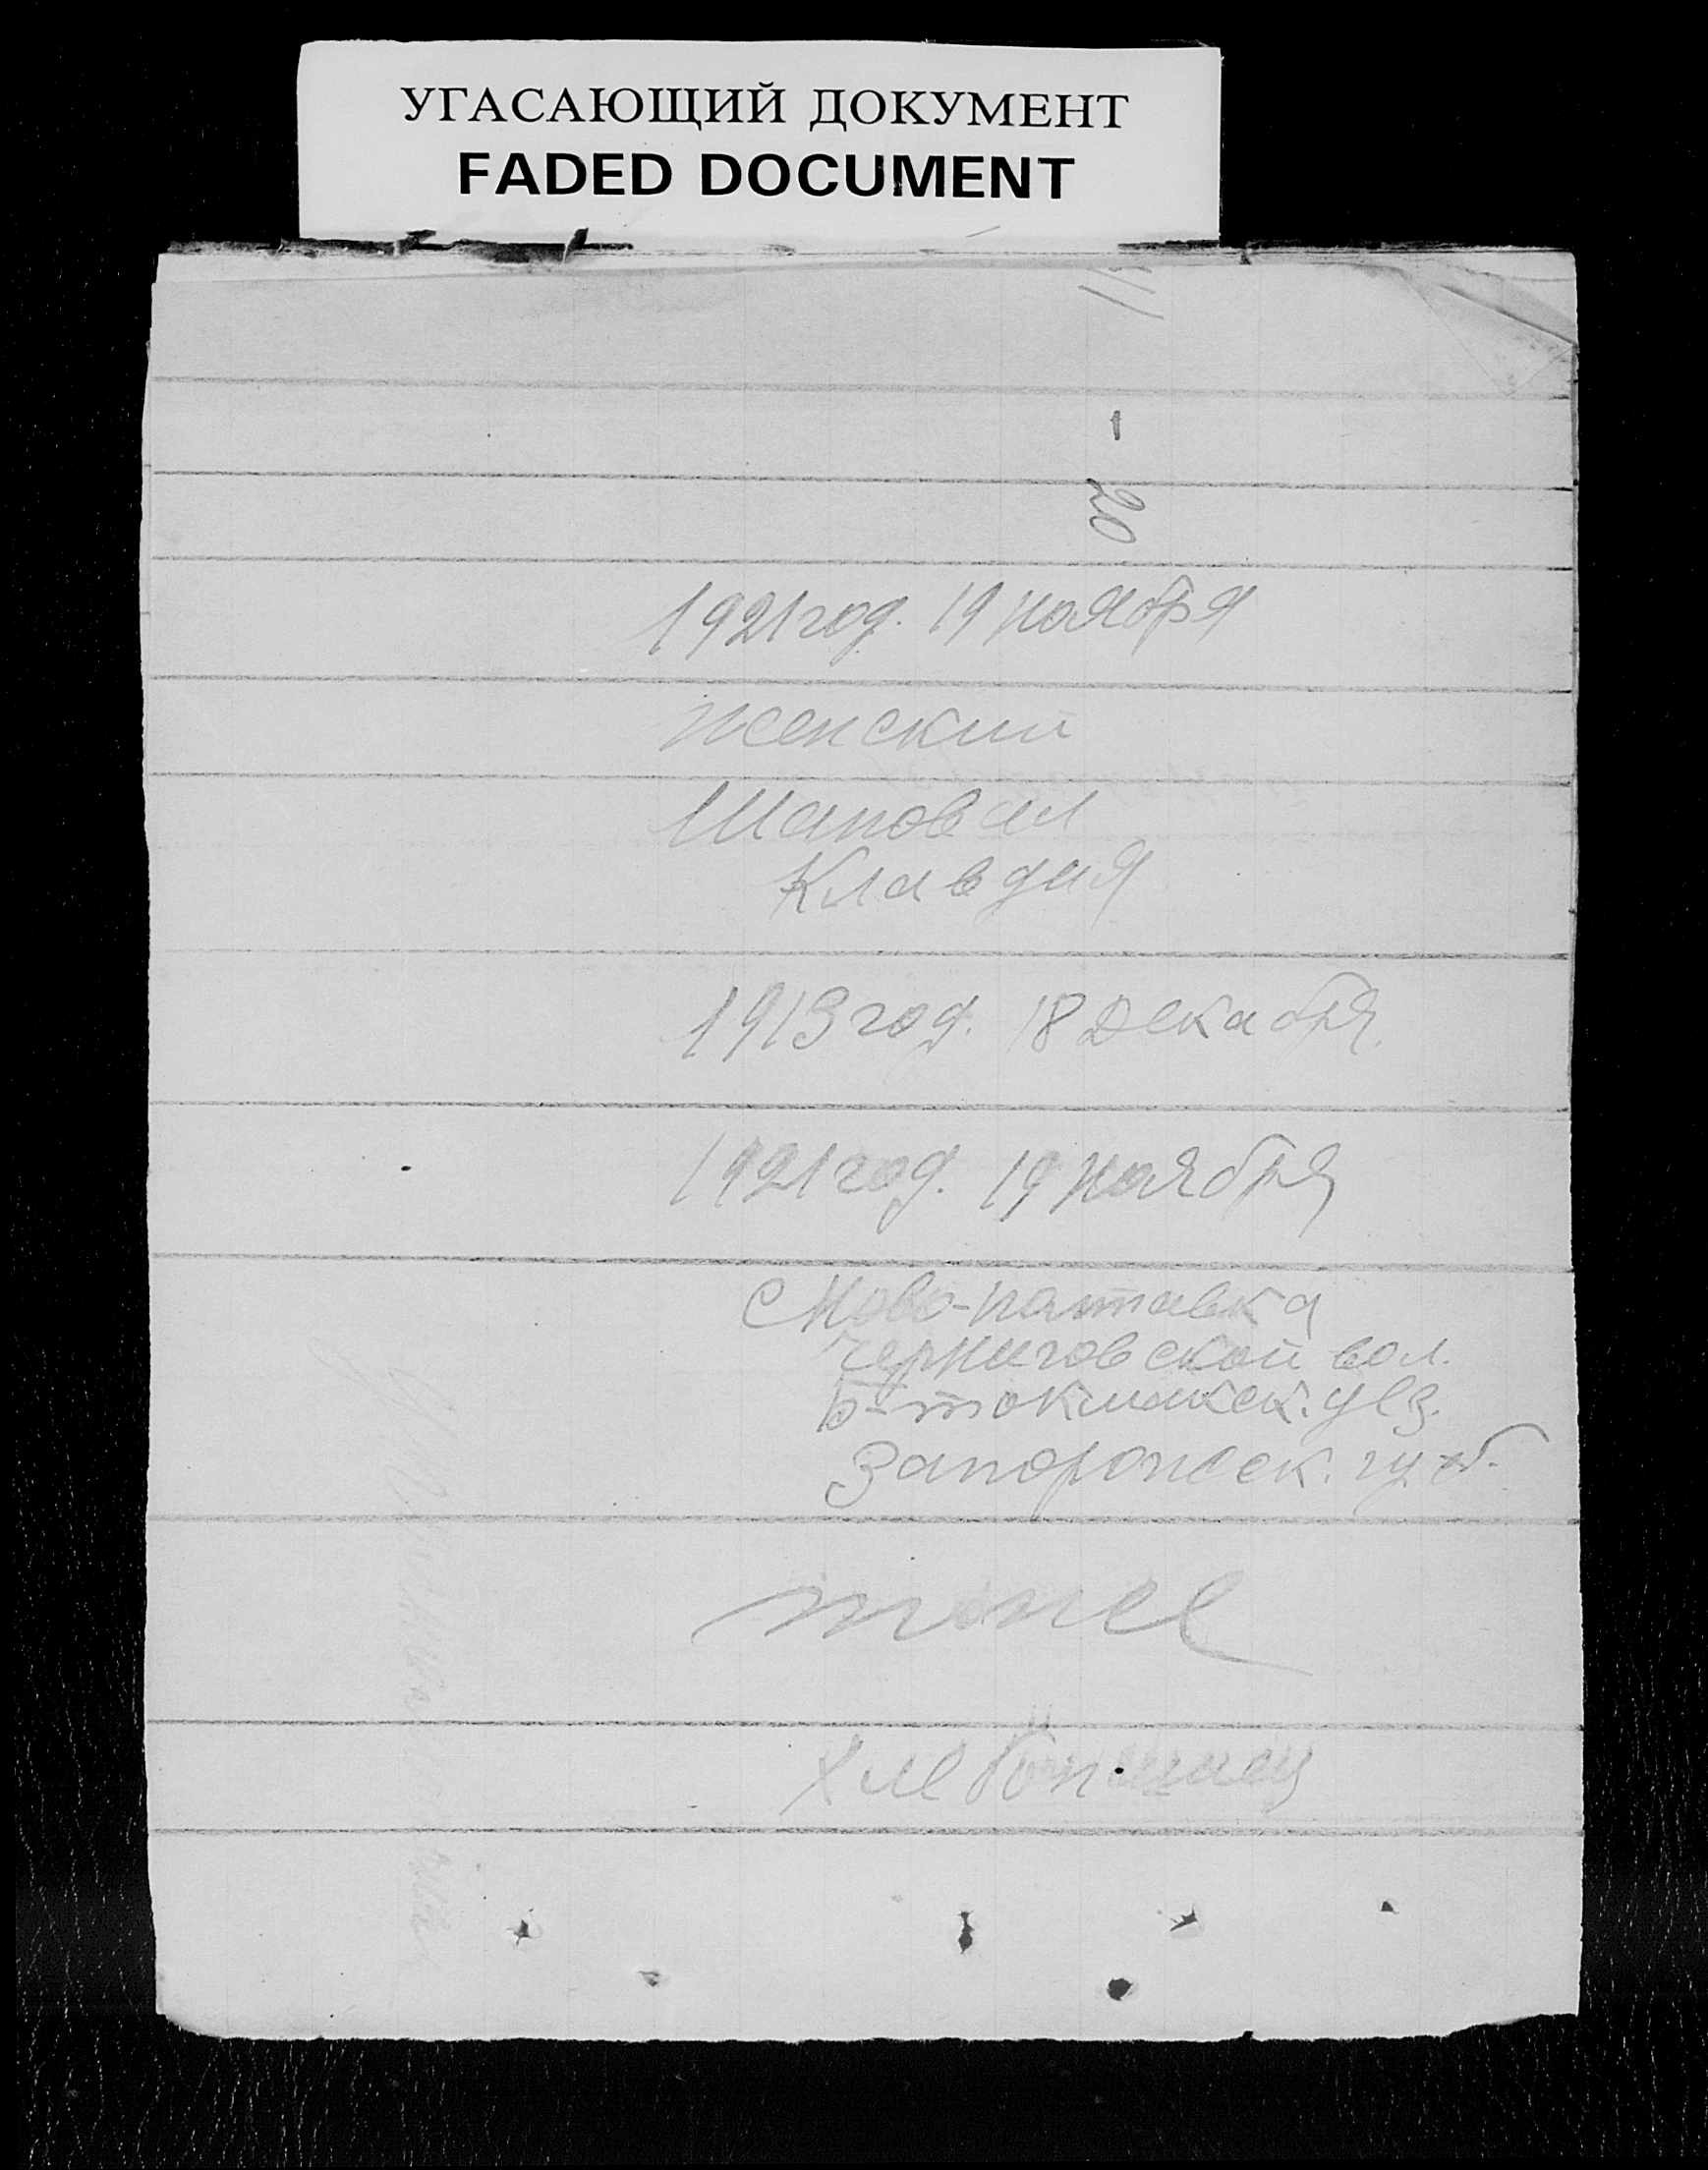 УГАСАЮЩИЙ ДОКУМЕНТ
FADED DOCUMENT
- 20
1921 год. 19 ноября
женский
Шаповал
Клавдия
1913 год. 18 декабря.
1921 год. 19 ноября
с Ново-патавка
черниговской вол.
Б-токмакск. уез.
Запорожск. губ.
тоже
Хлебопашец